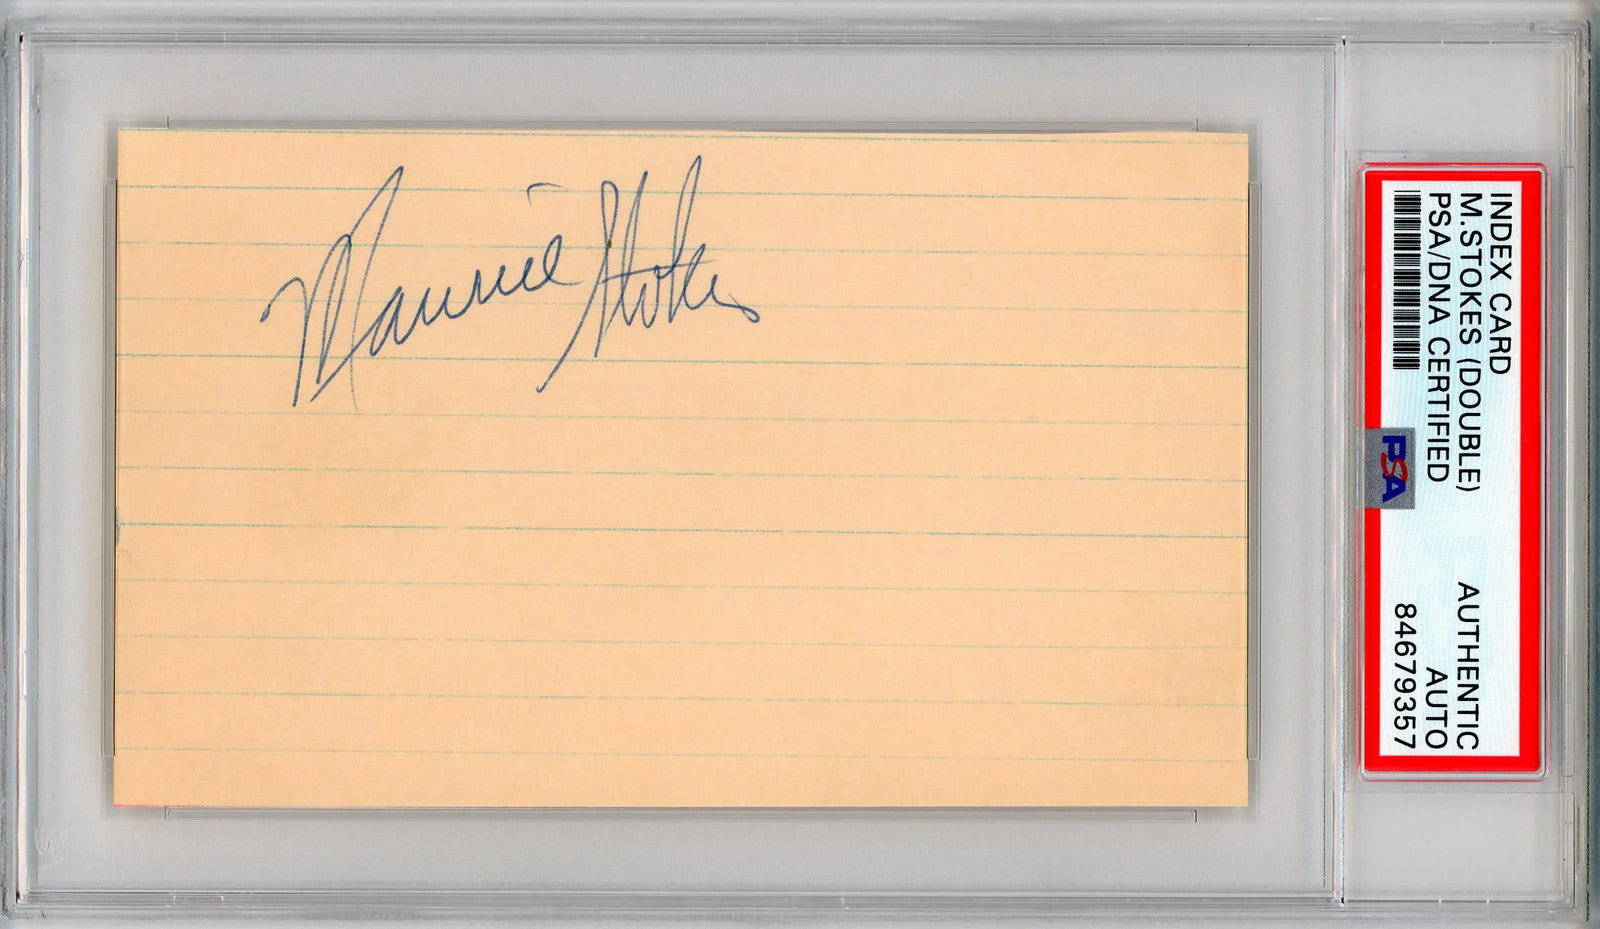 Maurice Stokes
INDEX CARD
M.STOKES (DOUBLE)
PSA/DNA CERTIFIED
AUTHENTIC
AUTO
84679357
PSA